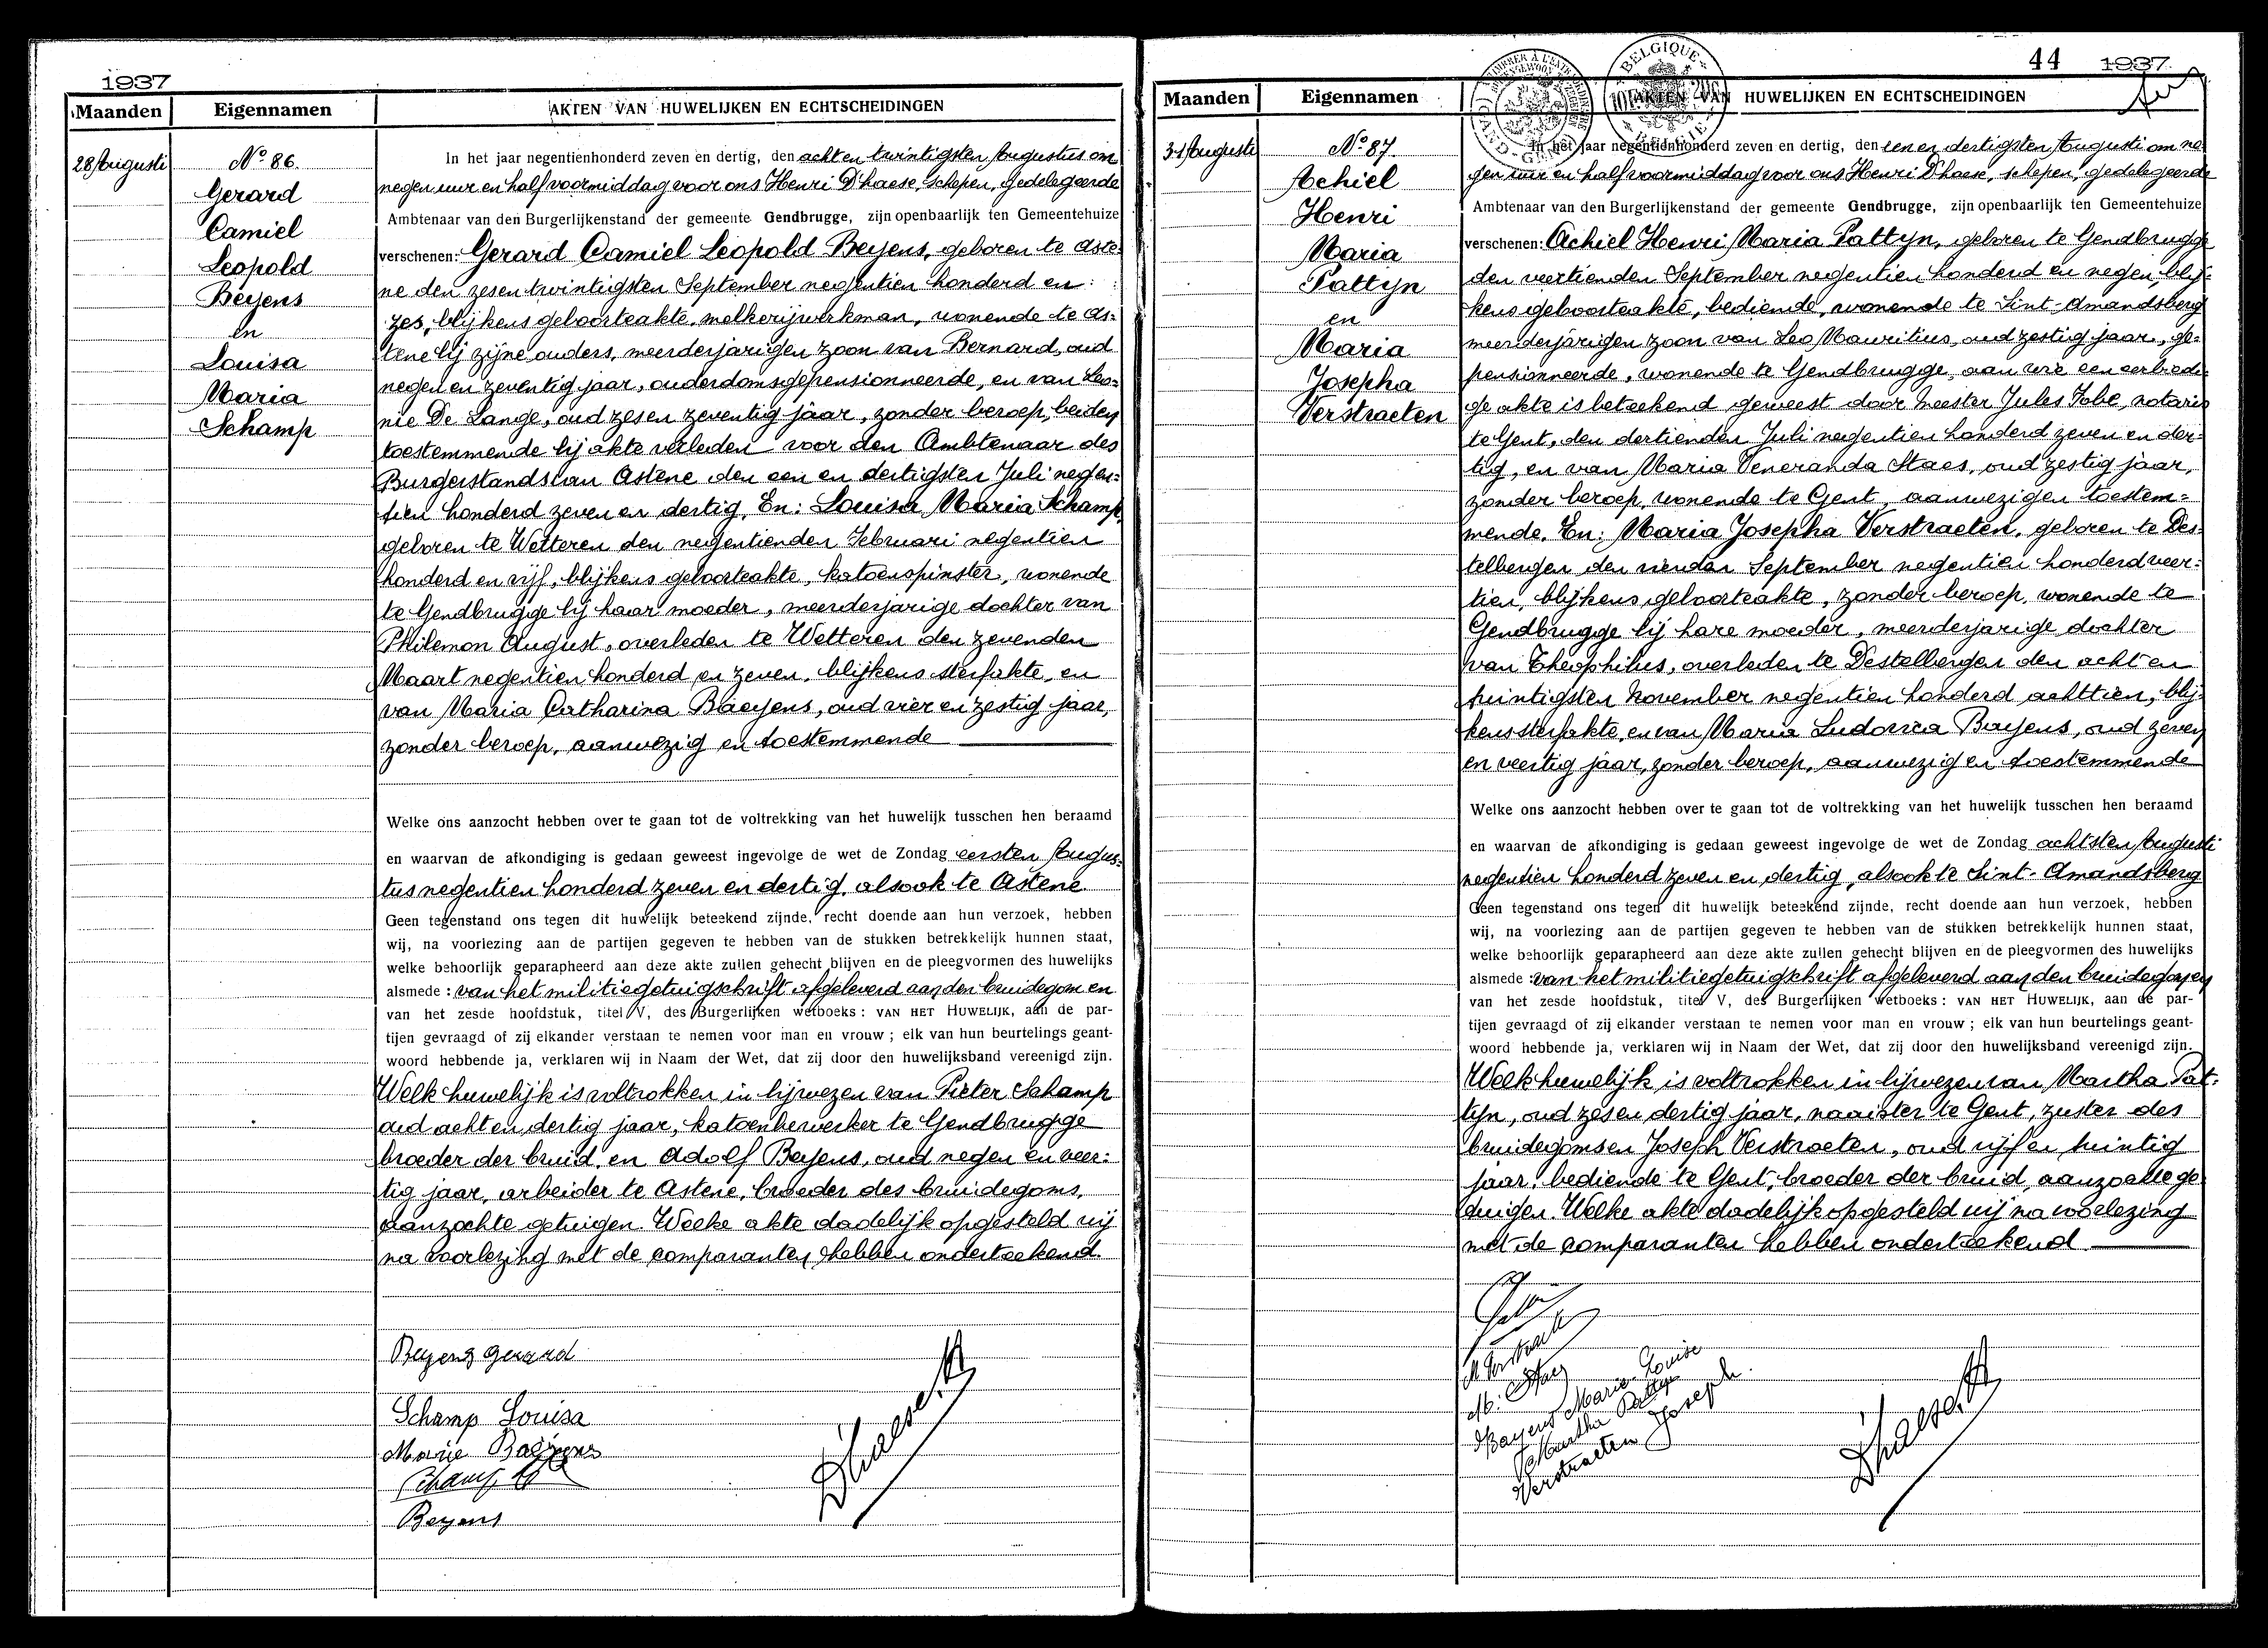 1937
Maanden Eigennamen AKTEN VAN HUWELIJKEN EN ECHTSCHEIDINGEN
28 Augusti
No 86.
Gerard
Camiel
Leopold
Beyens
en
Louisa
Maria
Schamp
In het jaar negentienhonderd zeven en dertig, den acht en twintigsten Augustus om
negen uur en half voormiddag voor ons Henri D'haese, schepen, gedelegeerde
Ambtenaar van den Burgerlijkenstand der gemeente Gendbrugge, zijn openbaarlijk ten Gemeentehuize
verschenen: Gerard Camiel Leopold Beyens, geboren te Aste-
ne den zesentwintigsten September negentien honderd en
zes, blijkens geboorteakte, melkerijwerkman, wonende te As-
tene bij zijne ouders, meerderjarigen zoon van Bernard, oud
negen en zeventig jaar, ouderdomsgepensionneerde, en van Leo-
nie De Lange, oud zesen zeventig jaar, zonder beroep, beiden
toestemmende bij akte verleden voor den Ambtenaar des
Burgerstands van Astene den een en dertigsten Juli negen-
tien honderd zeven en dertig, En: Louisa Maria Schamp,
geboren te Wetteren den negentienden Februari negentien
honderd en vijf, blijkens geboorteakte, katoenspinster, wonende
te Gendbrugge bij haar moeder, meerderjarige dochter van
Philemon August, overleden te Wetteren den zevenden
Maart negentien honderd en zeven, blijkens sterfakte, en
van Maria Catharina Baeyens, oud vier en zestig jaar,
zonder beroep, aanwezig en toestemmende
Welke ons aanzocht hebben over te gaan tot de voltrekking van het huwelijk tusschen hen beraamd
en waarvan de afkondiging is gedaan geweest ingevolge de wet de Zondag eersten Augus-
tus negentien honderd zeven en dertig, alsook te Astene.
Geen tegenstand ons tegen dit huwelijk beteekend zijnde, recht doende aan hun verzoek, hebben
wij, na voorlezing aan de partijen gegeven te hebben van de stukken betrekkelijk hunnen staat,
welke behoorlijk geparapheerd aan deze akte zullen gehecht blijven en de pleegvormen des huwelijks
alsmede: van het militiegetuigschrift afgeleverd aan den bruidegom en
van het zesde hoofdstuk, titel V, des Burgerlijken wetboeks: VAN HET HUWELIJK, aan de par-
tijen gevraagd of zij elkander verstaan te nemen voor man en vrouw; elk van hun beurtelings geant-
woord hebbende ja, verklaren wij in Naam der Wet, dat zij door den huwelijksband vereenigd zijn.
Welk huwelijk is voltrokken in bijwezen van Pieter Schamp
oud acht en dertig jaar, katoenbewerker te Gendbrugge
broeder der bruid, en Adolf Beyens, oud negen en veer-
tig jaar, arbeider te Astene, broeder des bruidegoms,
aanzochte getuigen. Welke akte dadelijk opgesteld wij
na voorlezing met de comparanten hebben onderteekend.
Beyens Gerard
Schamp Louisa
Marie Baeyens
Schamp
Beyens
D'haese H
44 1937
Maanden Eigennamen AKTEN VAN HUWELIJKEN EN ECHTSCHEIDINGEN
BELGIQUE
31 Augusti
No 87
Achiel
Henri
Maria
Pattyn
en
Maria
Josepha
Verstraeten
In het jaar negentienhonderd zeven en dertig, den een en dertigsten Augusti om ne-
gen uur en half voormiddag voor ons Henri D'haese, schepen, gedelegeerde
Ambtenaar van den Burgerlijkenstand der gemeente Gendbrugge, zijn openbaarlijk ten Gemeentehuize
verschenen: Achiel Henri Maria Pattyn, geboren te Gendbrugge
den veertienden September negentien honderd en negen, blij-
kens geboorteakte, bediende, wonende te Sint-Amandsberg
meerderjarigen zoon van Leo Mauritius, oud zestig jaar, ge-
pensionneerde, wonende te Gendbrugge, aan wie een eerbiedi-
ge akte is beteekend geweest door Meester Jules Fobe, notaris
te Gent, den dertienden Juli negentien honderd zeven en der-
tig, en van Maria Veneranda Staes, oud zestig jaar,
zonder beroep, wonende te Gent, aanwezig en toestem-
mende. En: Maria Josepha Verstraeten, geboren te Des-
telbergen den vierden September negentien honderd veer-
tien, blijkens geboorteakte, zonder beroep, wonende te
Gendbrugge bij hare moeder, meerderjarige dochter
van Theophilus, overleden te Destelbergen den acht en
twintigsten November negentien honderd achttien, blij-
kens sterfakte, en van Maria Ludovica Bayens, oud zeven
en veertig jaar, zonder beroep, aanwezig en toestemmende
Welke ons aanzocht hebben over te gaan tot de voltrekking van het huwelijk tusschen hen beraamd
en waarvan de afkondiging is gedaan geweest ingevolge de wet de Zondag achtsten Augusti
negentien honderd zeven en dertig, alsook te Sint-Amandsberg
Geen tegenstand ons tegen dit huwelijk beteekend zijnde, recht doende aan hun verzoek, hebben
wij, na voorlezing aan de partijen gegeven te hebben van de stukken betrekkelijk hunnen staat,
welke behoorlijk geparapheerd aan deze akte zullen gehecht blijven en de pleegvormen des huwelijks
alsmede: van het militiegetuigschrift afgeleverd aan den bruidegom en
van het zesde hoofdstuk, titel V, des Burgerlijken wetboeks: VAN HET HUWELIJK, aan de par-
tijen gevraagd of zij elkander verstaan te nemen voor man en vrouw; elk van hun beurtelings geant-
woord hebbende ja, verklaren wij in Naam der Wet, dat zij door den huwelijksband vereenigd zijn.
Welk huwelijk is voltrokken in bijwezen van Martha Pat-
tyn, oud zesen dertig jaar, naaister te Gent, zuster des
bruidegoms en Joseph Verstraeten, oud vijf en twintig
jaar, bediende te Gent, broeder der bruid, aanzochte ge-
tuigen. Welke akte dadelijk opgesteld wij na voorlezing
met de comparanten hebben onderteekend
Bayens Marie Louise
Martha Pattyn
Verstraeten Joseph.
D'haese H